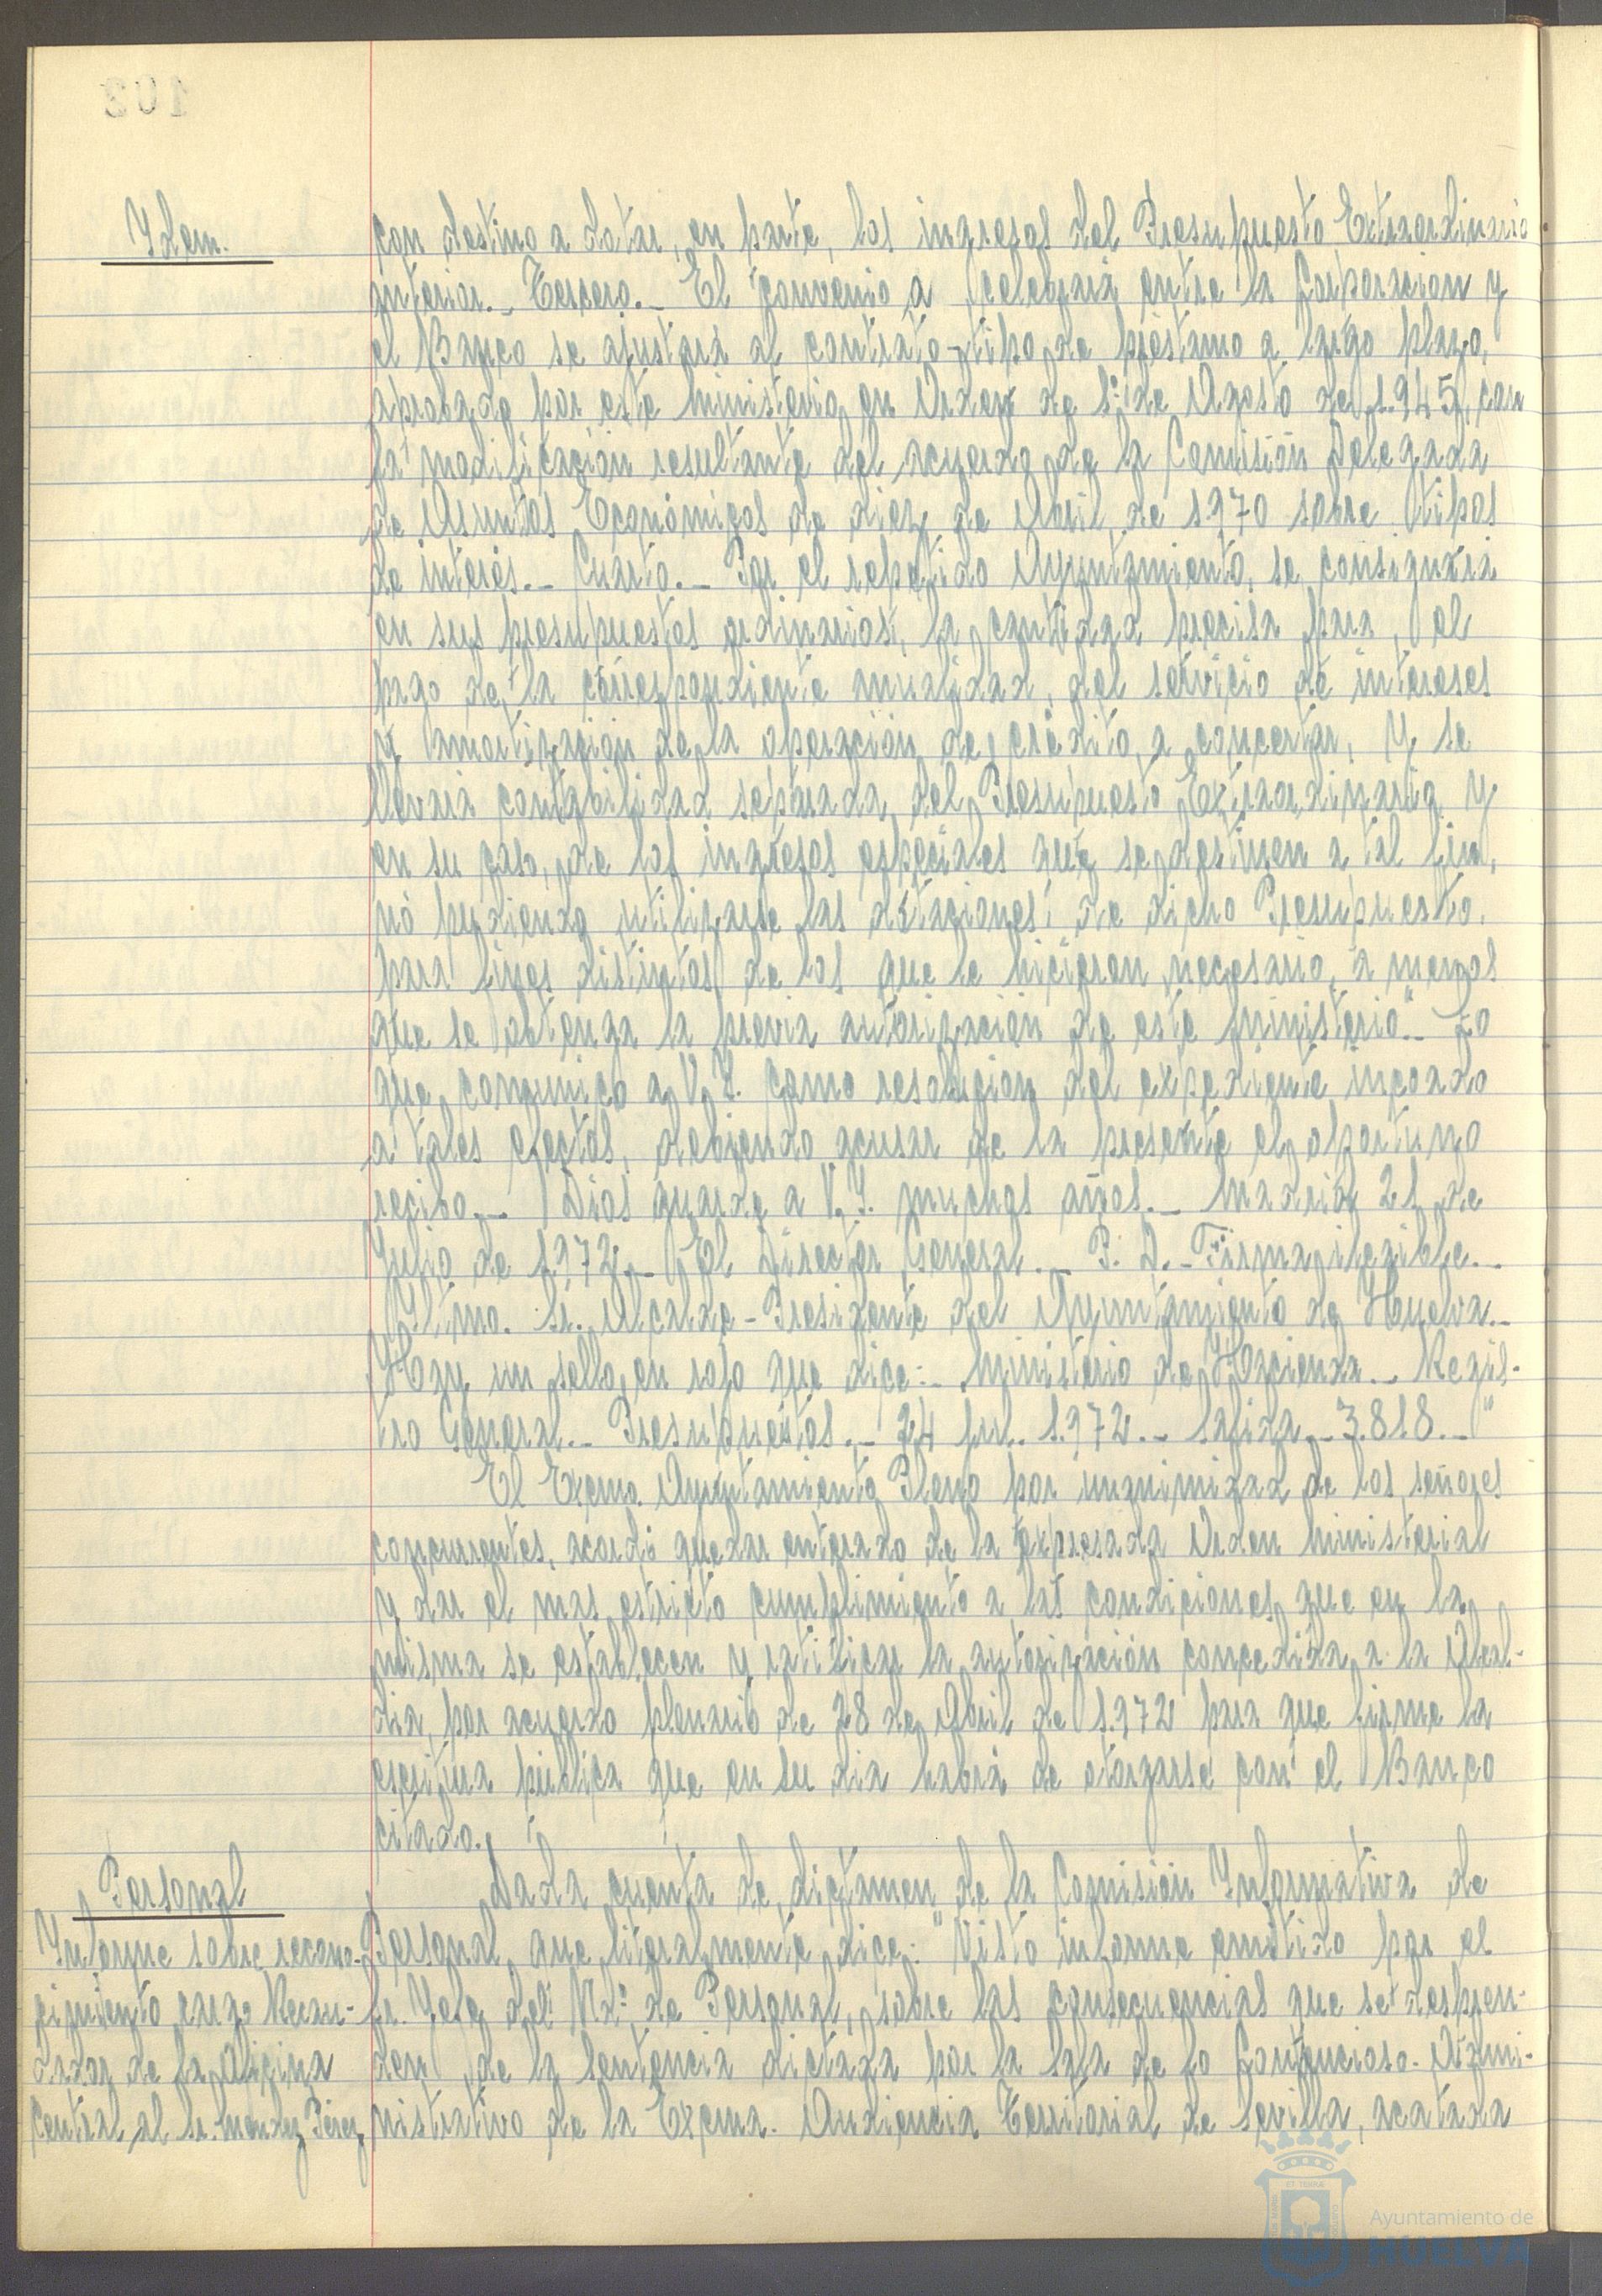 Ydem.
con destino a dotar, en parte, los ingresos del Presupuesto Extraordinario
anterior.- Tercero.- El convenio a celebrará entre la Corporación y
el Banco se ajustará al contrato-tipo de préstamo a largo plazo,
aprobado por este Ministerio en Orden de 1º de Agosto de 1.945, con
la modificación resultante del acuerdo de la Comisión Delegada
de Asuntos Económicos de diez de Abril de 1970 sobre tipos
de interés.- Cuarto.- Por el repetido Ayuntamiento, se consignará
en sus presupuestos ordinarios, la cantidad precisa para el
pago de la correspondiente anualidad, del servicio de intereses
y amortización de la operación de crédito, a concertar, y se
llevará contabilidad separada del Presupuesto Extraordinario y
en su caso, de los ingresos especiales que se destinen a tal fin,
no pudiendo utilizarse las dotaciones de dicho Presupuesto,
para fines distintos de los que le hicieron necesario, a menos
que se obtenga la previa autorización de este Ministerio".- Lo
que comunico a V. Y. como resolución del expediente incoado
a tales efectos, debiendo acusar de la presente el oportuno
recibo.- Dios guarde a V. Y. muchos años.- Madrid 21 de
Julio de 1.972.- El Director General.- P. D.- Firma ilegible.-
Yltmo. Sr. Alcalde-Presidente del Ayuntamiento de Huelva.-
Hay un sello en rojo que dice:- Ministerio de Hacienda.- Regis-
tro General.- Presupuestos.- 24 Jul. 1.972.- Salida.- 3.818.-"
El Excmo. Ayuntamiento Pleno por unanimidad de los señores
concurrentes, acordó quedar enterado de la expresada Orden Ministerial
y dar el mas estricto cumplimiento a las condiciones que en la
misma se establecen y ratificar la autorización concedida a la Alcal-
dia, por acuerdo plenario de 28 de Abril de 1.972 para que firme la
escritura pública que en su dia habrá de otorgarse con el Banco
citado.
Personal
Ynforme sobre recono-
cimiento cargo Recau-
dador de la Oficina
Central al Sr. Mendez Pérez
Dada cuenta de dictamen de la Comisión Ynformativa de
Personal, que literalmente dice: "Visto informe emitido por el
Sr. Jefe del Ndº de Personal, sobre las consecuencias que se despren-
den de la sentencia dictada por la Sala de lo Contencioso-Admi-
nistrativo de la Excma. Audiencia Territorial de Sevilla, acatada
Ayuntamiento de
HUELVA